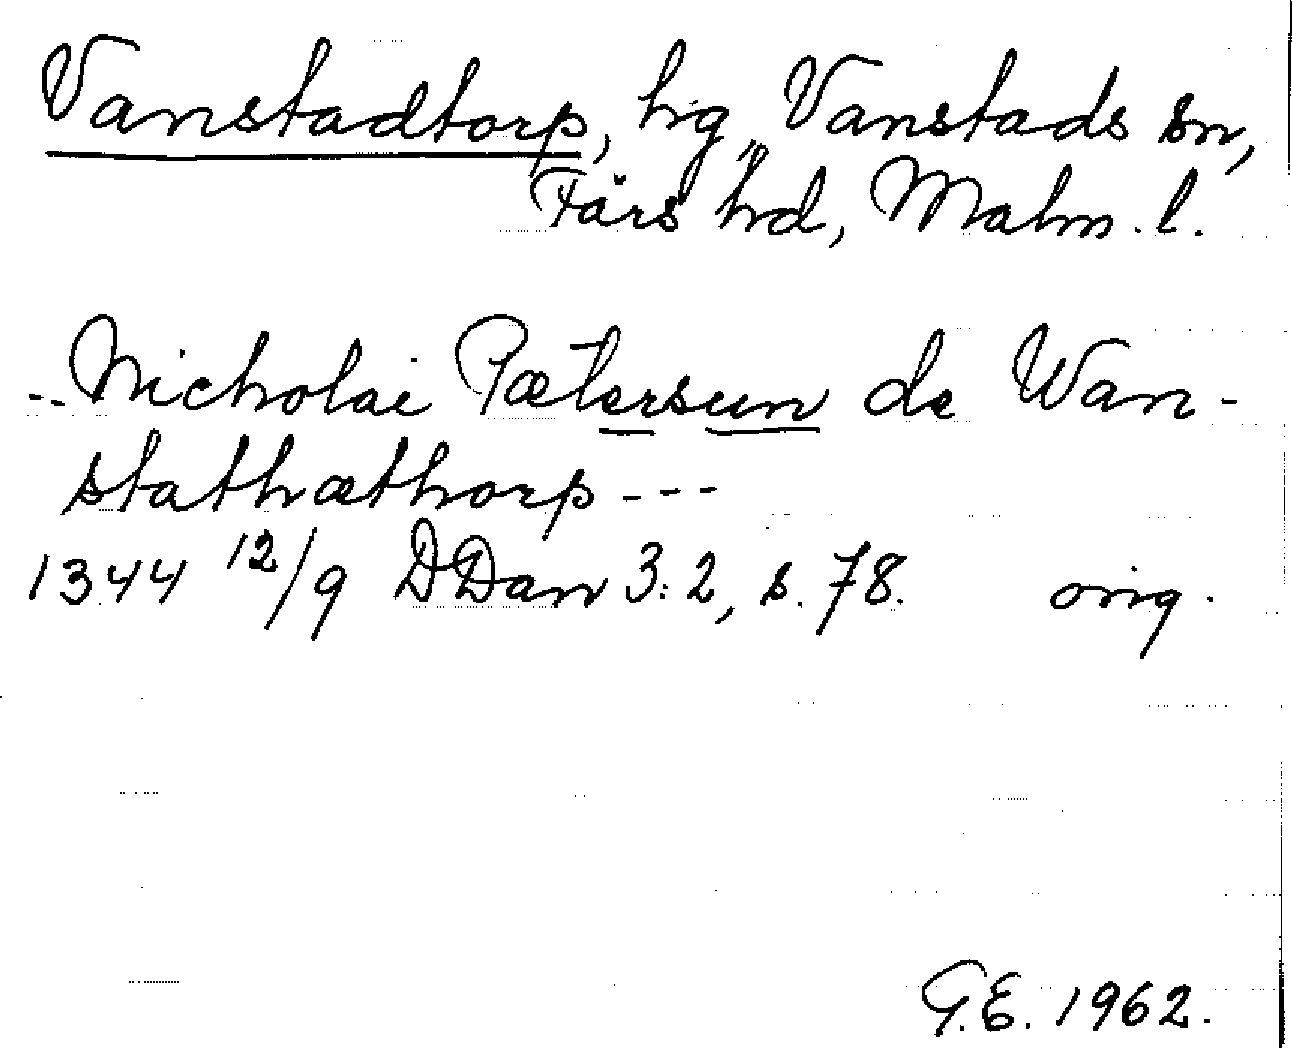 Vanstadtorp, hg, Vanstads sn,
Färs hd, Malm. l.
-- Nicholai Pætersun de Wan-
stathæthorp ---
1344 12/9 DDan 3:2, s. 78. orig.
G.E. 1962.